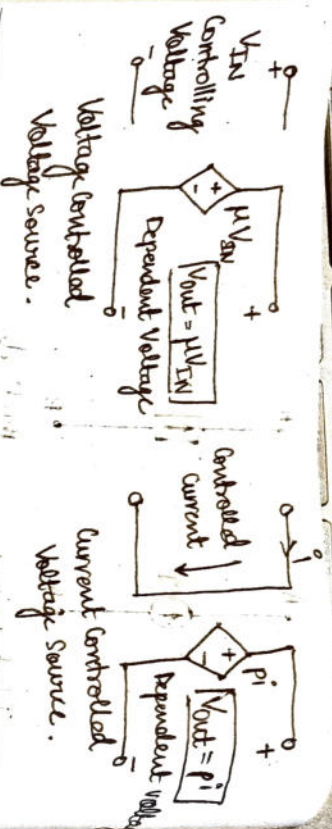 +
V_IN
Controlling
Voltage
-
μV_IN
+
-
+
Vout = μV_IN
Dependent Voltage
-
Voltage Controlled
Voltage Source.
i
Controlled
Current
+
-
ρi
+
Vout = ρi
Dependent
-
Current Controlled
Voltage Source.